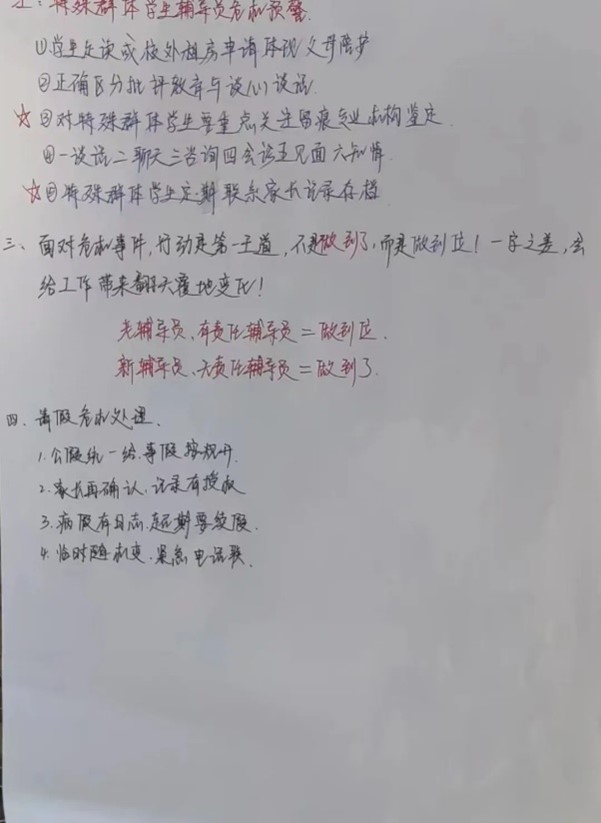 二:特殊群体学生辅导员危机预警.
①学生走读或校外租房申请体现父母陪护
②正确区分批评教育与谈心谈话.
☆③对特殊群体学生要重点关注留痕专业机构鉴定.
④一谈话二聊天三咨询四会诊五见面六知情.
☆⑤特殊群体学生定期联系家长记录存档
三、面对危机事件,行动是第一王道,不是做到了,而是做到位!一字之差,会
给工作带来翻天覆地变化!
老辅导员、有责任辅导员=做到位.
新辅导员、无责任辅导员=做到了.
四、请假危机处理.
1.公假统一给.事假按规开.
2.家长再确认.记录有授权
3.病假有日志.超期要续假.
4.临时随机变.紧急电话联.